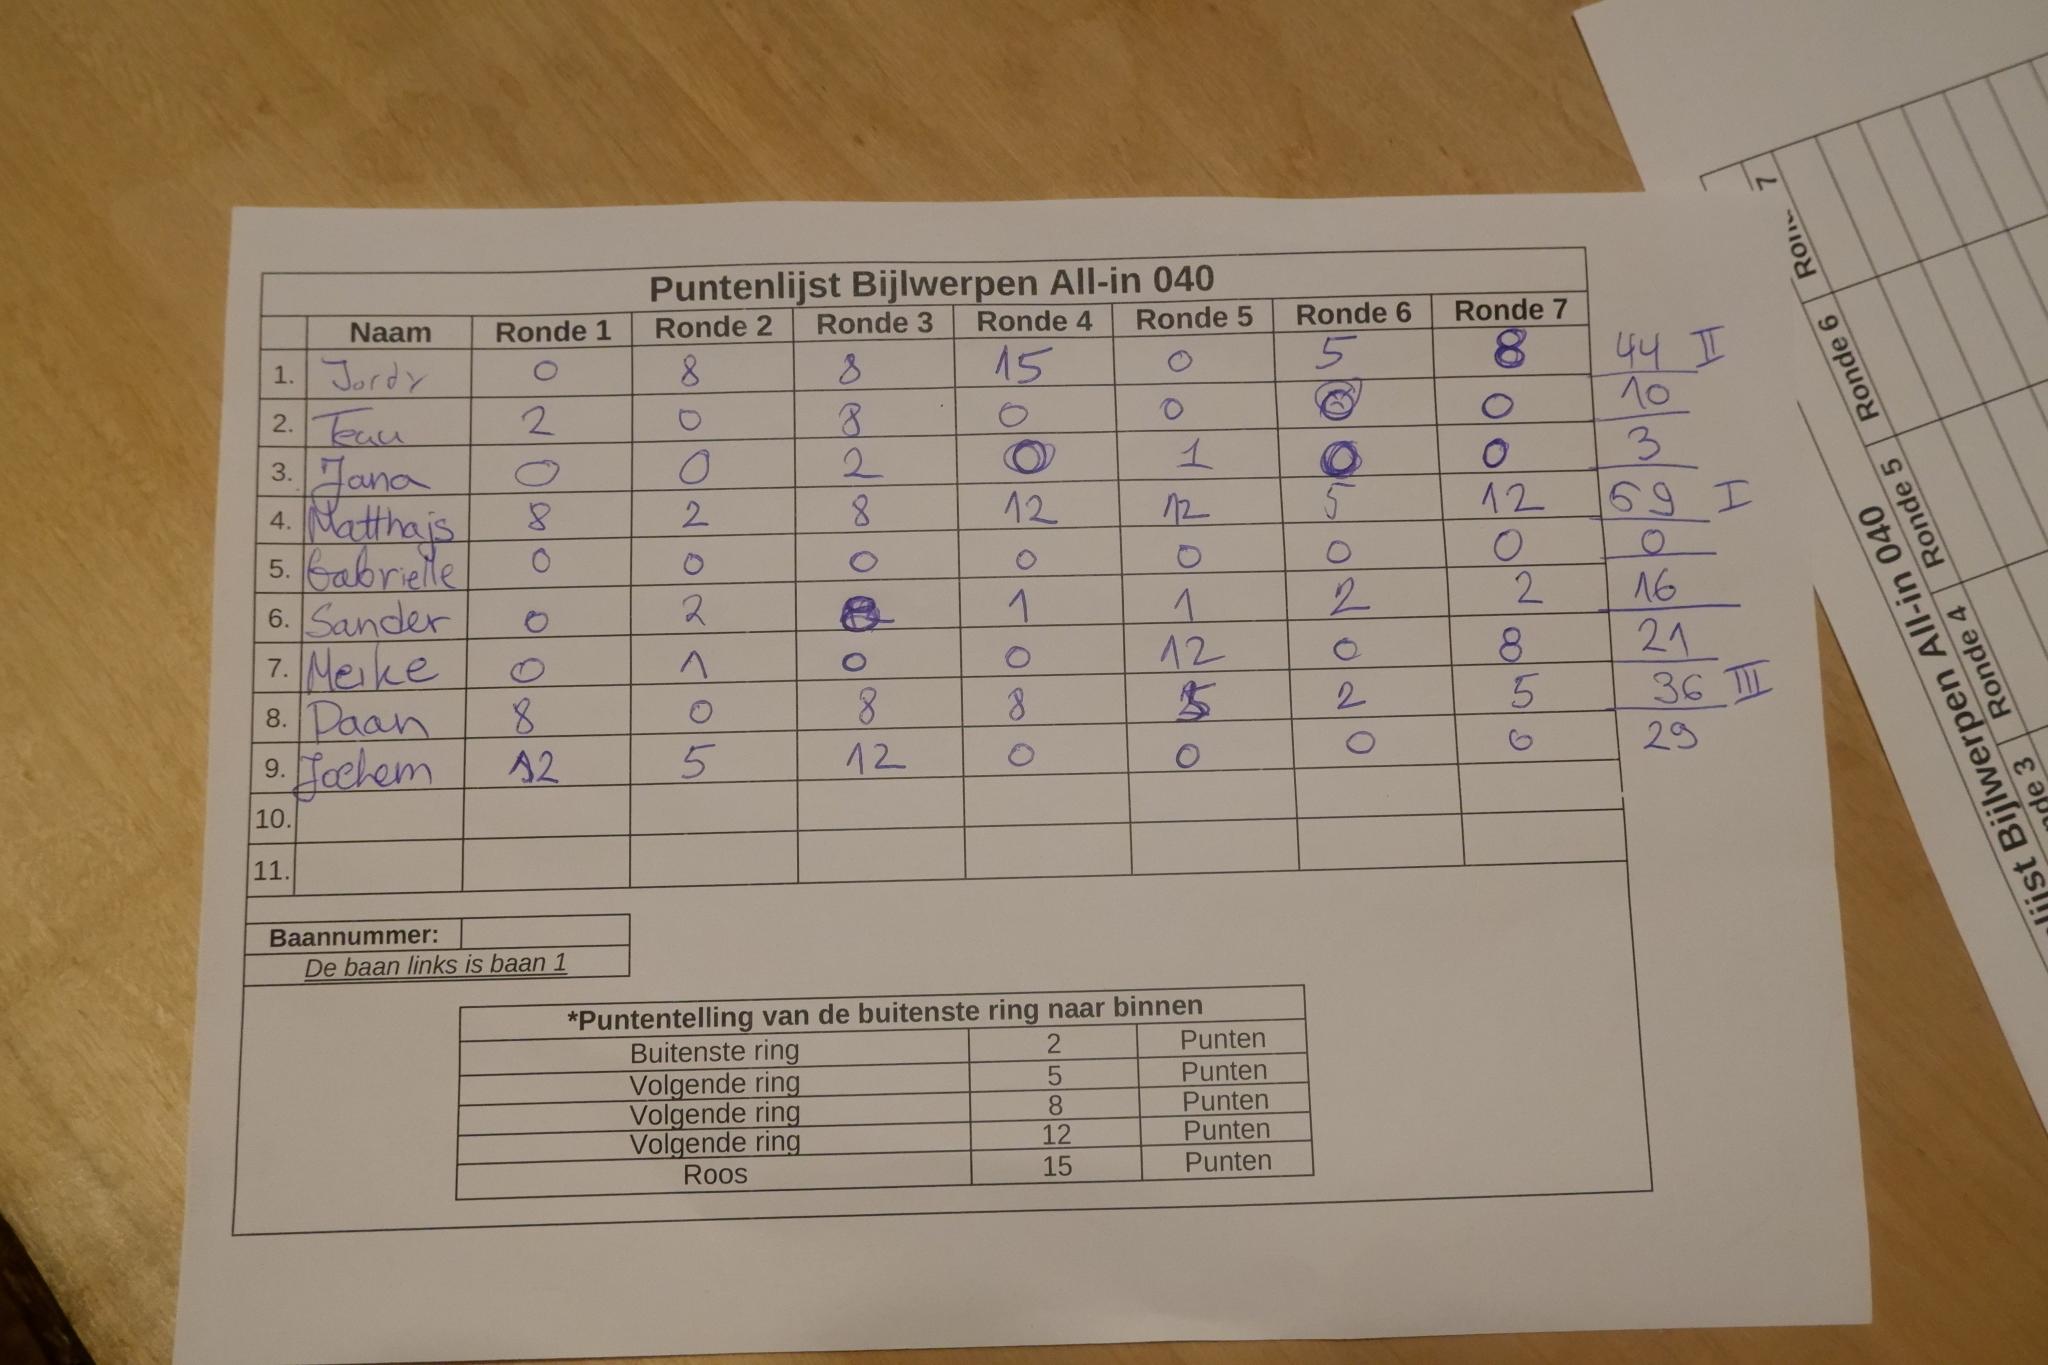 Puntenlijst Bijlwerpen All-in 040
Naam Ronde 1 Ronde 2 Ronde 3 Ronde 4 Ronde 5 Ronde 6 Ronde 7
1. Jordy 0 8 8 15 0 5 8 44 II
2. Teau 2 0 8 0 0 0 0 10
3. Jana 0 0 2 0 1 0 0 3
4. Matthajs 8 2 8 12 12 5 12 59 I
5. Gabrielle 0 0 0 0 0 0 0 0
6. Sander 0 2 8 1 1 2 2 16
7. Meike 0 1 0 0 12 0 8 21
8. Daan 8 0 8 8 5 2 5 36 III
9. Jochem 12 5 12 0 0 0 0 29
10.
11.
Baannummer:
De baan links is baan 1
*Puntentelling van de buitenste ring naar binnen
Buitenste ring 2 Punten
Volgende ring 5 Punten
Volgende ring 8 Punten
Volgende ring 12 Punten
Roos 15 Punten
Bijlwerpen All-in 040
Ronde 4 Ronde 5 Ronde 6
7